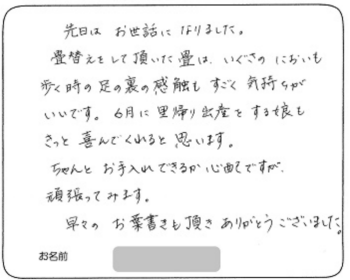 先日は お世話に なりました。
畳替えをして頂いた畳は、いぐさの においも
歩く時の足の裏の感触も すごく気持ちが
いいです。6月に里帰り出産をする娘も
きっと 喜んでくれると 思います。
ちゃんと お手入れできるか心配ですが、
頑張ってみます。
早々の お葉書きも頂き ありがとうございました。
お名前